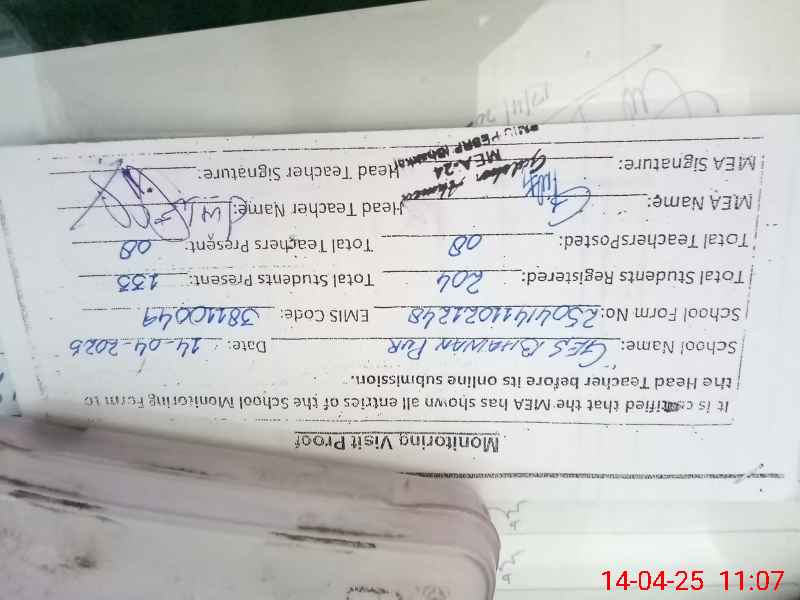 Monitoring Visit Proof
It is certified that the MEA has shown all entries of the School Monitoring Form to
the Head Teacher before its online submission.
School Name: GES BHAWAN PUR Date: 14-04-2025
School Form No: 250414111021248 EMIS Code: 38110049
Total Students Registered: 204 Total Students Present: 133
Total TeachersPosted: 08 Total Teachers Present: 08
MEA Name: Head Teacher Name:
MEA Signature: Head Teacher Signature:
MEA-24
14-04-25 11:07